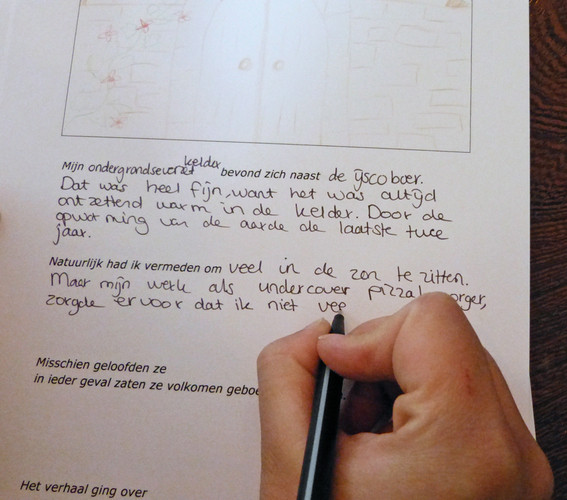 Mijn ondergrondse verzetkelder bevond zich naast de ijscoboer.
Dat was heel fijn, want het was altijd
ontzettend warm in de kelder. Door de
opwarming van de aarde de laatste twee
jaar.
Natuurlijk had ik vermeden om veel in de zon te zitten.
Maar mijn werk als undercover
zorgde ervoor dat ik niet vee
Misschien geloofden ze
in ieder geval zaten ze volkomen geboe
Het verhaal ging over